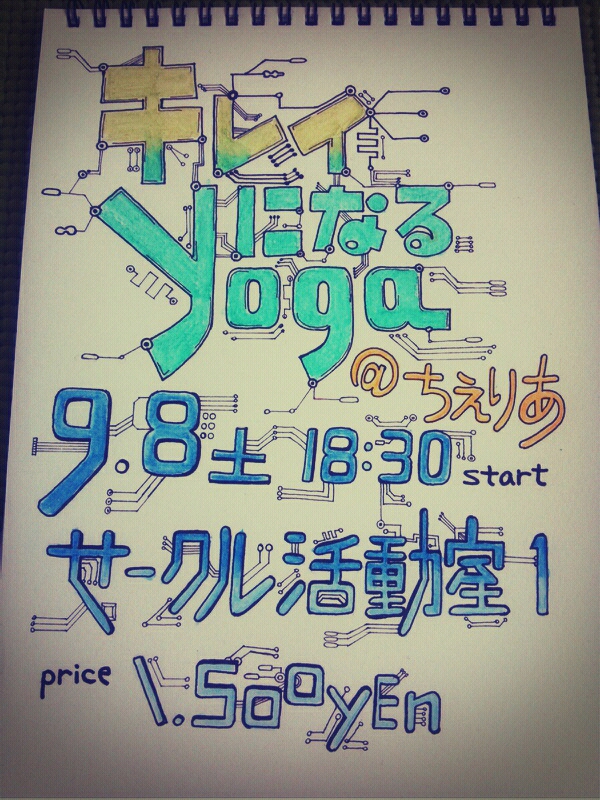 キレイ
になる
yoga
@ちえりあ
9.8土 18:30 start
サークル活動室1
price 1.500yEn